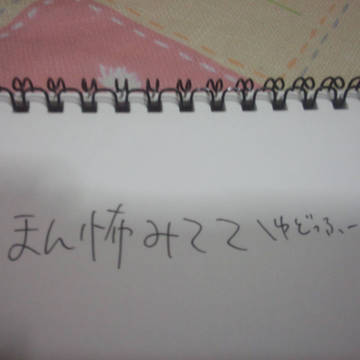 まん怖みてて\ゆどうふ、ー